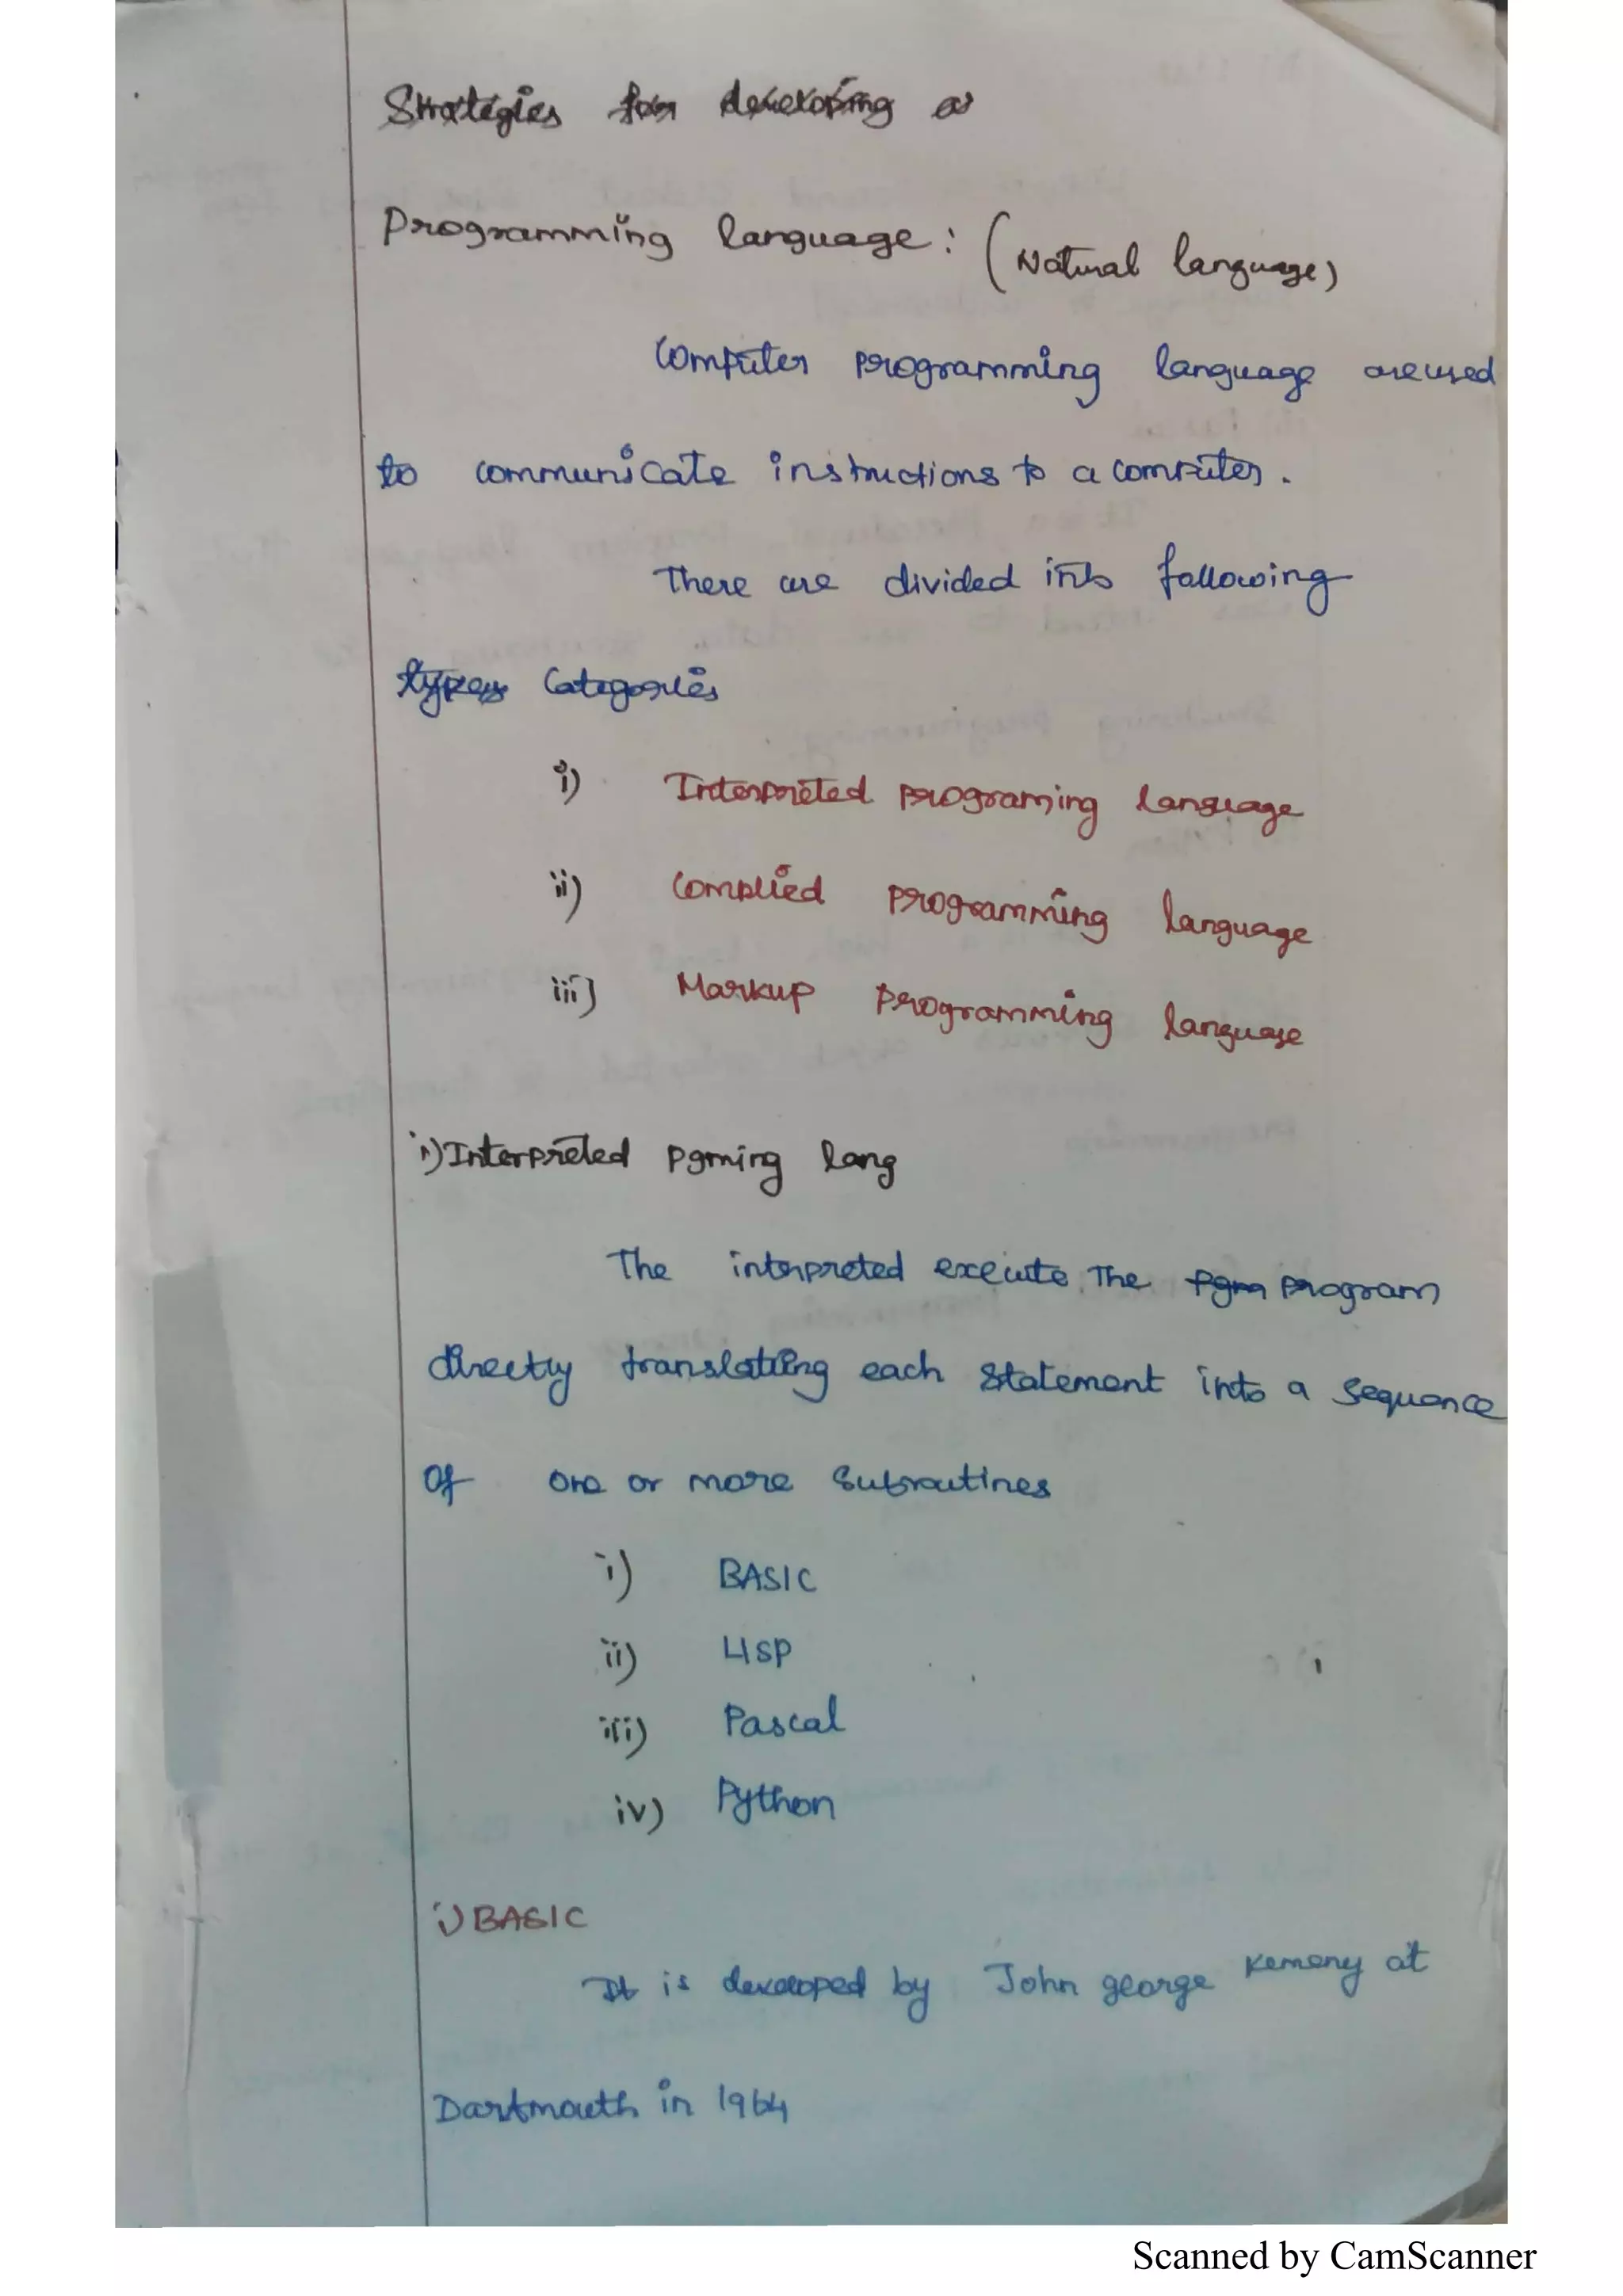 Strategies for developing a
Programming language: (Natural language)
Computer programming language are used
to communicate instructions to a computer.
There are divided into following
types Categories
i) Interpreted programing language
ii) Complied programming language
iii) Markup programming language
i) Interpreted pgming lang
The interpreted execute The pgm program
directly translating each statement into a sequence
of one or more subroutines
i) BASIC
ii) LISP
iii) Pascal
iv) Python
i) BASIC
It is developed by John george Kemeny at
Dartmouth in 1964
Scanned by CamScanner